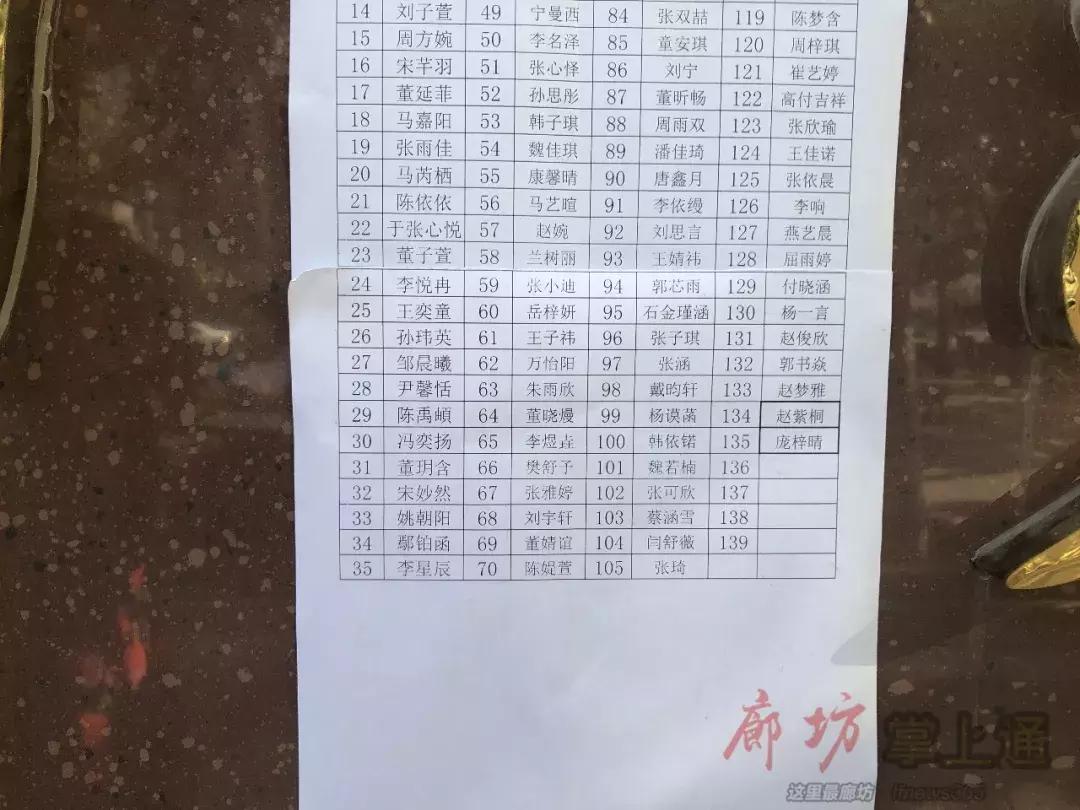 14 刘子萱 49 宁曼西 84 张双喆 119 陈梦含
15 周方婉 50 李名泽 85 童安琪 120 周梓琪
16 宋芊羽 51 张心怿 86 刘宁 121 崔艺婷
17 董延菲 52 孙思彤 87 董昕畅 122 高付吉祥
18 马嘉阳 53 韩子琪 88 周雨双 123 张欣瑜
19 张雨佳 54 魏佳琪 89 潘佳琦 124 王佳诺
20 马芮栖 55 康馨晴 90 唐鑫月 125 张依晨
21 陈依依 56 马艺暄 91 李依缦 126 李响
22 于张心悦 57 赵婉 92 刘思言 127 燕艺晨
23 董子萱 58 兰树丽 93 王婧祎 128 屈雨婷
24 李悦冉 59 张小迪 94 郭芯雨 129 付晓涵
25 王奕童 60 岳梓妍 95 石金瑾涵 130 杨一言
26 孙玮英 61 王子祎 96 张子琪 131 赵俊欣
27 邹晨曦 62 万怡阳 97 张涵 132 郭书焱
28 尹馨恬 63 朱雨欣 98 戴昀轩 133 赵梦雅
29 陈禹𬱖 64 董晓嫚 99 杨谟菡 134 赵紫桐
30 冯奕扬 65 李煜垚 100 韩依锘 135 庞梓晴
31 董玥含 66 樊舒予 101 魏若楠 136
32 宋妙然 67 张雅婷 102 张可欣 137
33 姚朝阳 68 刘宇轩 103 蔡涵雪 138
34 鄢铂函 69 董婧谊 104 闫舒薇 139
35 李星辰 70 陈媞萱 105 张琦
廊坊 掌上通
这里最廊坊